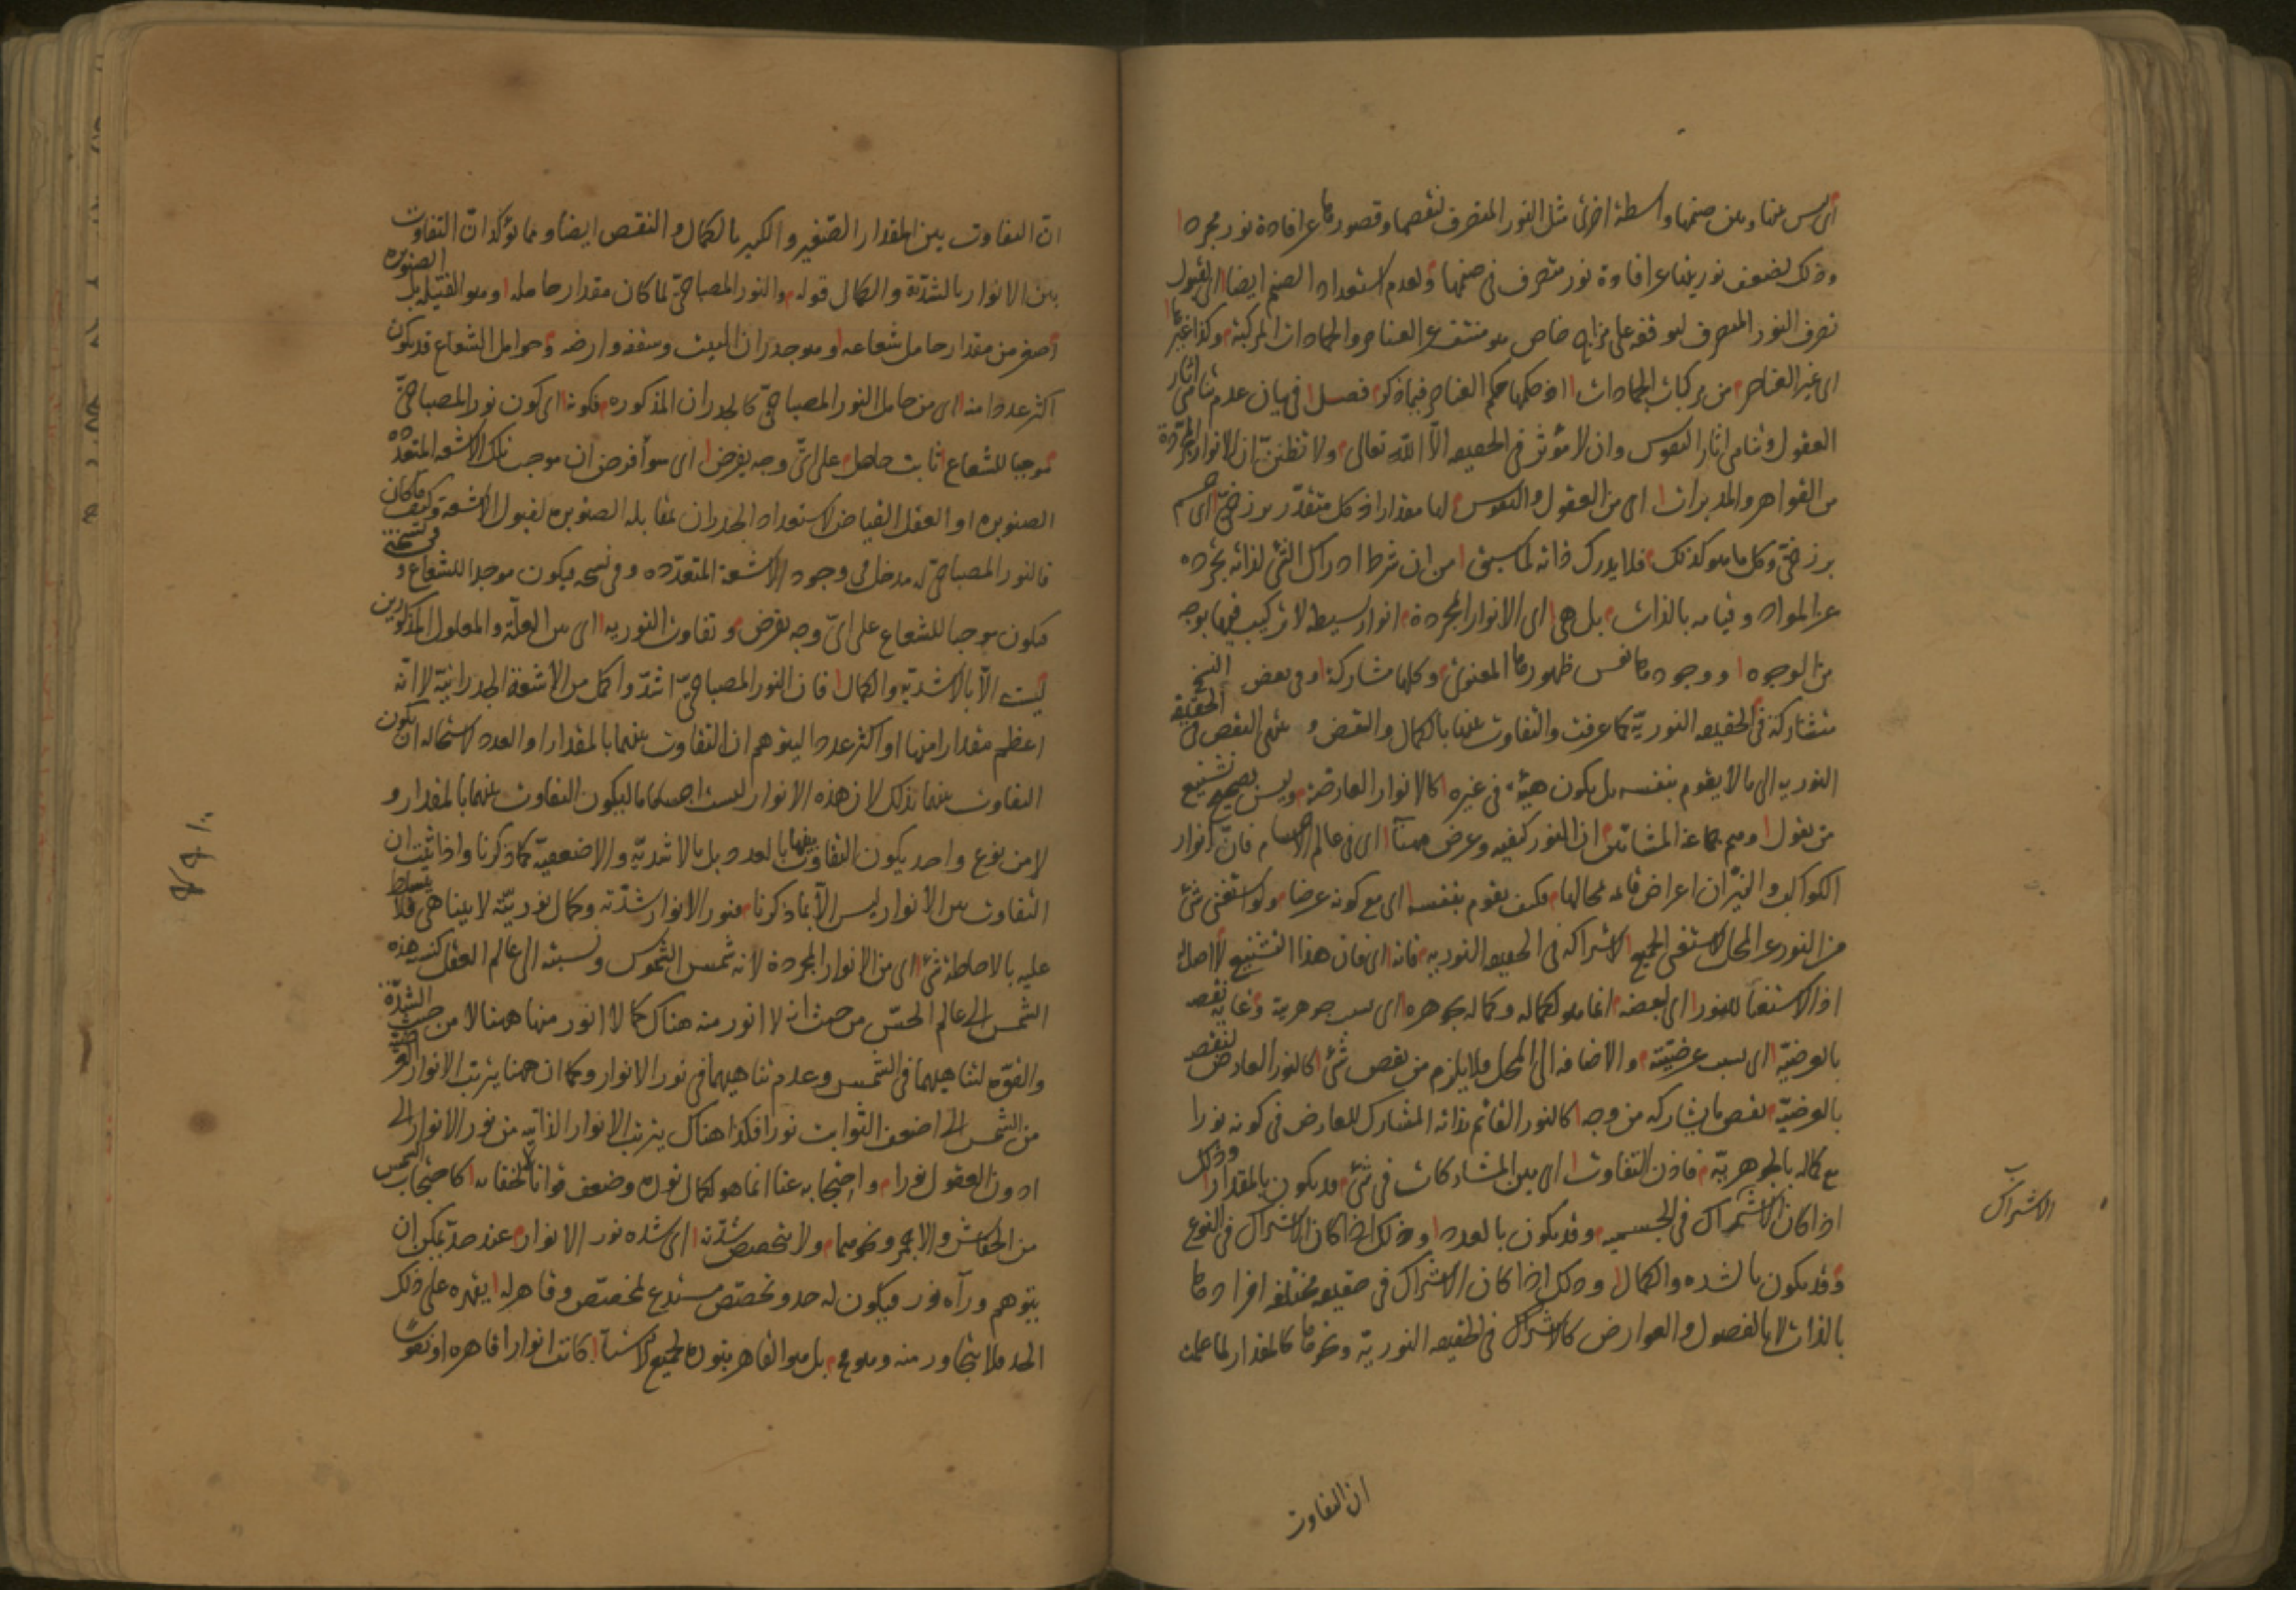 اى ليس بينها وبين صنمها واسطة اخرى مثل النور المتصرف لنقصها وقصورها عن افادة نور مجرد
وذلك لضعف نوريتها عن افادة نور متصرف فى صنمها ولعدم استعداد الصنم ايضا لقبول
تصرف النور المتصرف لتوقفه على مزاج خاص هو منتف عن العناصر والجمادات المركبة وكذا غيرها
اى غير العناصر من مركبات الجمادات اذ حكمها حكم العناصر فيما ذكر فصل فى بيان عدم تناهى آثار
العقول وتناهى اثار النفوس وان لا مؤثر فى الحقيقه الّا الله تعالى ولا تظننّ ان الانوار المجرّدة
من القواهر والمدبرات اى من العقول والنفوس لها مقدار اذ كل متقدّر برزخىّ اى جسم
برزخىّ وكل ما هو كذلك فلا يدرك ذاته لما سبق من ان شرط ادراك الشئ لذاته تجرده
عن المواد وقيامه بالذات بل هى اى الانوار المجردة انوار بسيطه لا تركيب فيها بوجه
من الوجوه ووجودها نفس ظهورها المعنوى وكلها مشاركة وفى بعض النسخ
متشاركة فى الحقيقه النوريّة كما عرفت والتفاوت بينها بالكمال والنقص وينتهى النقص فى الحقيقة
النوريه الى ما لا يقوم بنفسه بل يكون هيئة فى غيره كالانوار العارضة وليس بصحيح تشنيع
من يقول وهم جماعة المشائين ان النور كيفيه وعرض ههنا اى فى عالم الاجسام فانّ انوار
الكواكب والنيّران اعراض قائمه بمحالها فكيف يقوم بنفسه اى مع كونه عرضا ولو استغنى شئ
من النور عن المحل لاستغنى الجميع لاشتراكه فى الحقيقه النوريه فانه اى فان هذا التشنيع لا اصل له
اذ الاستغناء للنور اى لبعضه انما هو لكماله وكماله بجوهره اى بسبب جوهرية وغاية نقصه
بالعرضيّة اى بسبب عرضيّته والاضافه الى المحل فلا يلزم من نقص شئ كالنور العارض لنقصه
بالعرضيّة نقص ما يشاركه من وجه كالنور القائم بذاته المشارك للعارض فى كونه نورا
مع كماله بالجوهريّة فاذن التفاوت اى بين المشاركات فى شئ قد يكون بالمقدار وذلك
اذا كان الاشتراك فى الجسميه وقد يكون بالعدد وذلك اذا كان الاشتراك فى النوع
وقد يكون بالشده والكمال وذلك اذا كان الاشتراك فى حقيقه مختلفه افرادها
بالذات لا بالفصول والعوارض كالاشتراك فى الحقيقه النوريّة ونحوها كالمقدار لما علمت
ان التفاوت
الاشراك
انّ التفاوت بين المقدار الصّغير والكبير بالكمال والنقص ايضا ومما يؤكد انّ التفاوت
بين الانوار بالشدّة والكمال قوله والنور المصباحىّ لما كان مقدار حامله وهو الفتيله بل الصنوبره
اصغر من مقدار حامل شعاعه وهو جدران البيت وسقفه وارضه وحوامل الشعاع قد يكون
اكثر عددا منه اى من حامل النور المصباحىّ كالجدران المذكوره فكونه اى كون نور المصباحىّ
موجبا للشعاع ثابت حاصل على اىّ وجه يفرض اى سواء فرض ان موجب تلك الاشعه المتعدّده
الصنوبره او العقل الفياض لاستعداد الجدران بمقابله الصنوبره لقبول الاشعة وكيف ما كان
فالنور المصباحىّ له مدخل فى وجود الاشعة المتعدّده وفى نسخه فيكون موجدا للشعاع وفى نسخة
فيكون موجبا للشعاع على اىّ وجه يفرض وتفاوت النوريه اى بين العلّة والمعلول المذكورين
ليست الّا بالاشدّيّة والكمال فان النور المصباحىّ اشدّ واكمل من الاشعة الجدرانيّة لا انّه
اعظم مقدارا منها او اكثر عددا ليتوهم ان التفاوت بينهما بالمقدار او العدد لاستحاله ان يكون
التفاوت بينهما بذلك لان هذه الانوار ليست اجساما ليكون التفاوت بينهما بالمقدار و
لا من نوع واحد يكون التفاوت بينهما بالعدد بل بالاشديّه والاضعفيّة كما ذكرنا واذا ثبت ان
التفاوت بين الانوار ليس الّا بما ذكرنا فنور الانوار شدّته وكمال نوريّته لا يتناهى فلا يتسلط
عليه بالاحاطة شئ اى من الانوار المجردة لانه شمس الشموس ونسبته الى عالم العقل كنسبة هذه
الشمس الى عالم الحسّ من حيث انه لا انور منه هناك كما لا انور منها ههنا لا من حيث الشدّة
والقوّه لتناهيهما فى الشمس وعدم تناهيهما فى نور الانوار وكما ان ههنا يترتب الانوار العرضيّة
من الشمس الى اضعف الثوابت نورا فكذا هناك يترتب الانوار الذاتيه من نور الانوار الى
ادون العقول نورا واحتجابه عنا انما هو لكمال نوره وضعف قوانا لا لخفائه كاحتجاب الشمس
من الخفاش والاجهر ونحوهما ولا يتخصص شدّته اى شده نور الانوار عند حدّ يمكن ان
يتوهم وراء نور فيكون له حد وتخصّص مستدع لمخصّص وقاهر له يقهره على ذلك
الحد فلا يتجاوز منه وهو مح بل هو القاهر بنوره لجميع الاشياء كانت انوارا قاهره او نفوسا